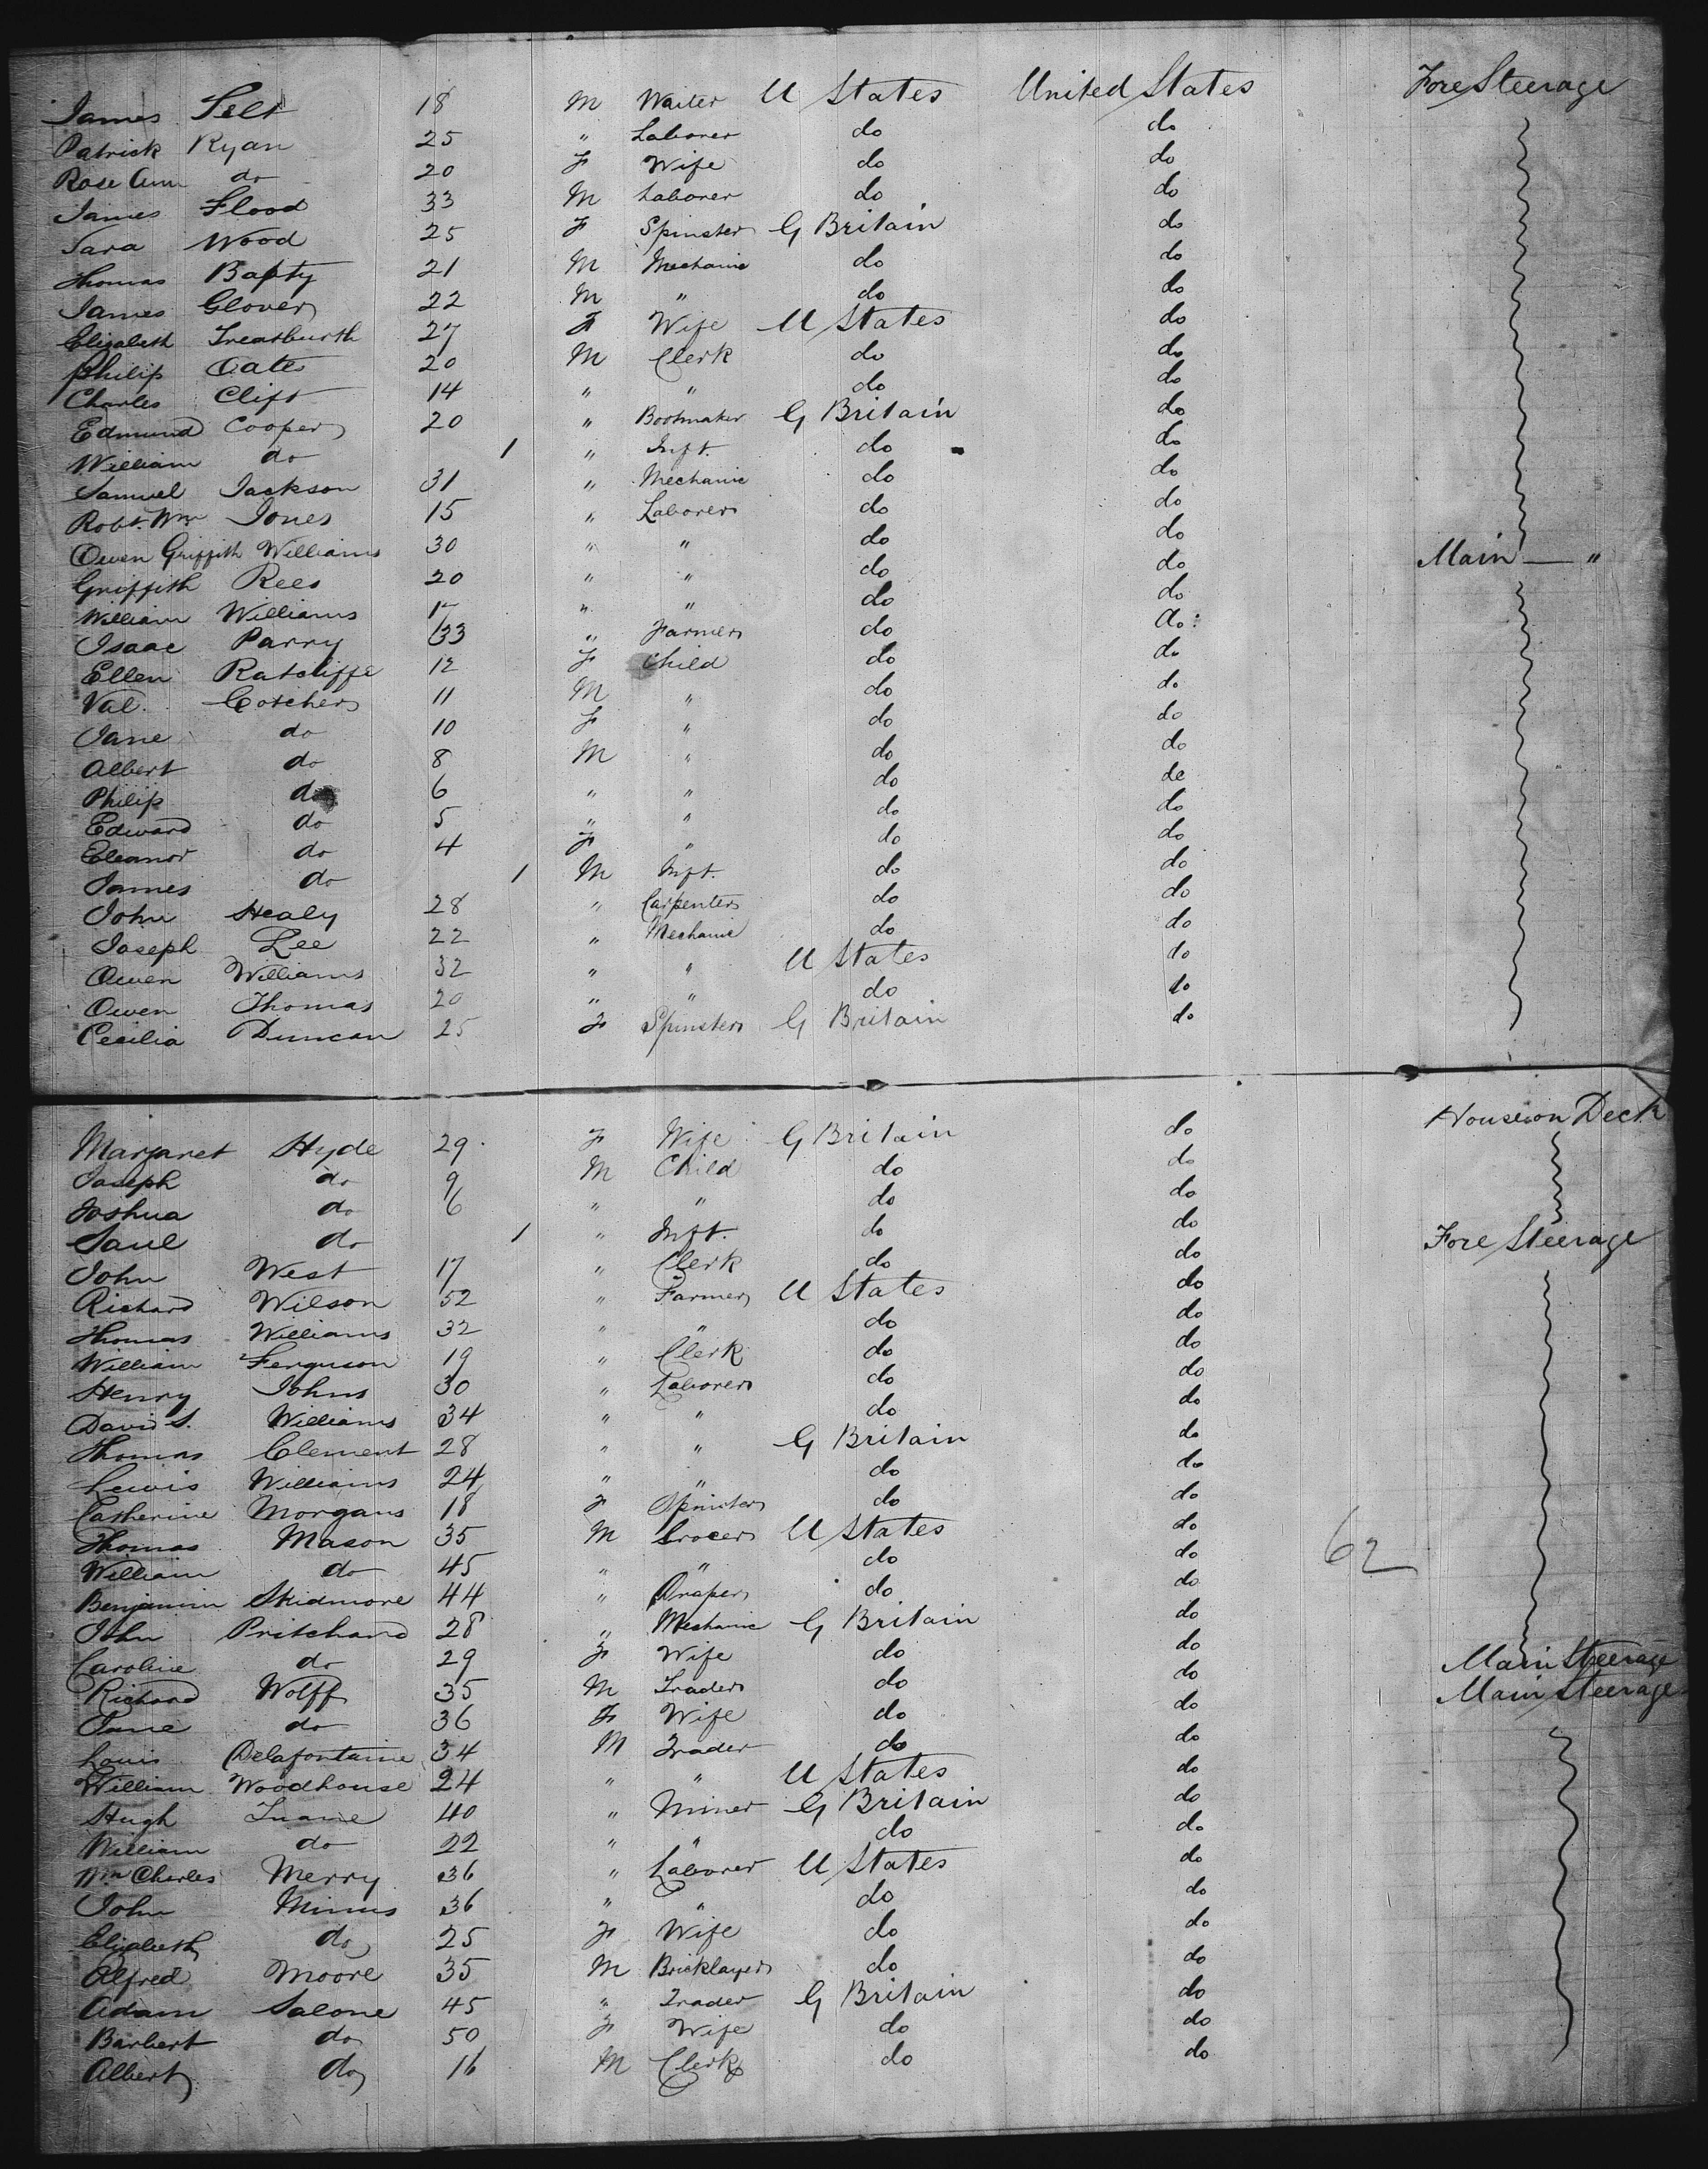 James Selt 18 M Waiter U States United States Fore Steerage
Patrick Ryan 25 " Laborer do do
Rose Ann do 20 F Wife do do
James Flood 33 M Laborer do do
Sara Wood 25 F Spinster G Britain do
Thomas Bapty 21 M Mechanic do do
James Glover 22 M " do do
Elizabeth 27 F Wife U States do
Philip Oates 20 M Clerk do do
Charles Clift 14 " " do do
Edmund Cooper 20 " Bootmaker G Britain do
William do 1 " Inft. do do
Samuel Jackson 31 " Mechanic do do
Robt. Wm Jones 15 " Laborer do do
Owen Griffith Williams 30 " " do do Main — "
Griffith Rees 20 " " do do
William Williams " " do do
Isaac Parry 33 " Farmer do do
Ellen Ratcliffe 12 F Child do do
Val. Cotcher 11 M " do do
Jane do 10 F " do do
Albert do 8 M " do do
Philip do 6 " " do do
Edward do 5 " " do do
Eleanor do 4 F " do do
James do 1 M Inft. do do
John Healy 28 " Carpenter do do
Joseph Lee 22 " Mechanic do do
Owen Williams 32 " " U States do
Owen Thomas 20 " " do do
Cecilia Duncan 25 F Spinster G Britain do
Margaret Hyde 29 F Wife G Britain do House on Deck
Joseph do 9 M Child do do
Joshua do 6 " " do do
Saul do 1 " Inft. do do Fore Steerage
John West 17 " Clerk do do
Richard Wilson 52 " Farmer U States do
Thomas Williams 32 " " do do
William Ferguson 19 " Clerk do do
Henry Johns 30 " Laborer do do
David S. Williams 34 " " do do
Thomas Clement 28 " " G Britain do
Lewis Williams 24 " " do do
Catherine Morgans 18 F Spinster do do
Thomas Mason 35 M Grocer U States do 62
William do 45 " " do do
Benjamin Skidmore 44 " Draper do do
John Pritchard 28 " Mechanic G Britain do
Caroline do 29 F Wife do do Main Steerage
Richard Wolff 35 M Trader do do Main Steerage
Jane do 36 F Wife do do
Louis Delafontaine 34 M Trader do do
William Woodhouse 24 " " U States do
Hugh 40 " Miner G Britain do
William do 22 " " do do
Wm Charles Merry 36 " Laborer U States do
John Minns 36 " " do do
Elizabeth do 25 F Wife do do
Alfred Moore 35 M Bricklayer do do
Adam Salone 45 " Trader G Britain do
Barbert do 50 F Wife do do
Albert do 16 M Clerk do do